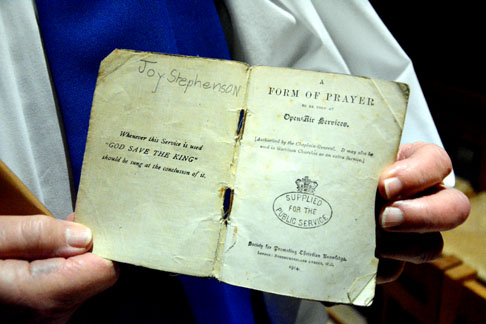 Joy Stephenson
Whenever this Service is used
"GOD SAVE THE KING"
should be sung at the conclusion of it.
A
FORM OF PRAYER
TO BE USED AT
Open-Air Services.
[Authorised by the Chaplain-General. It may also be
used in Garrison Churches as an extra Service.]
SUPPLIED
FOR THE
PUBLIC SERVICE
Society for Promoting Christian Knowledge.
LONDON: NORTHUMBERLAND AVENUE, W.C.
1914.